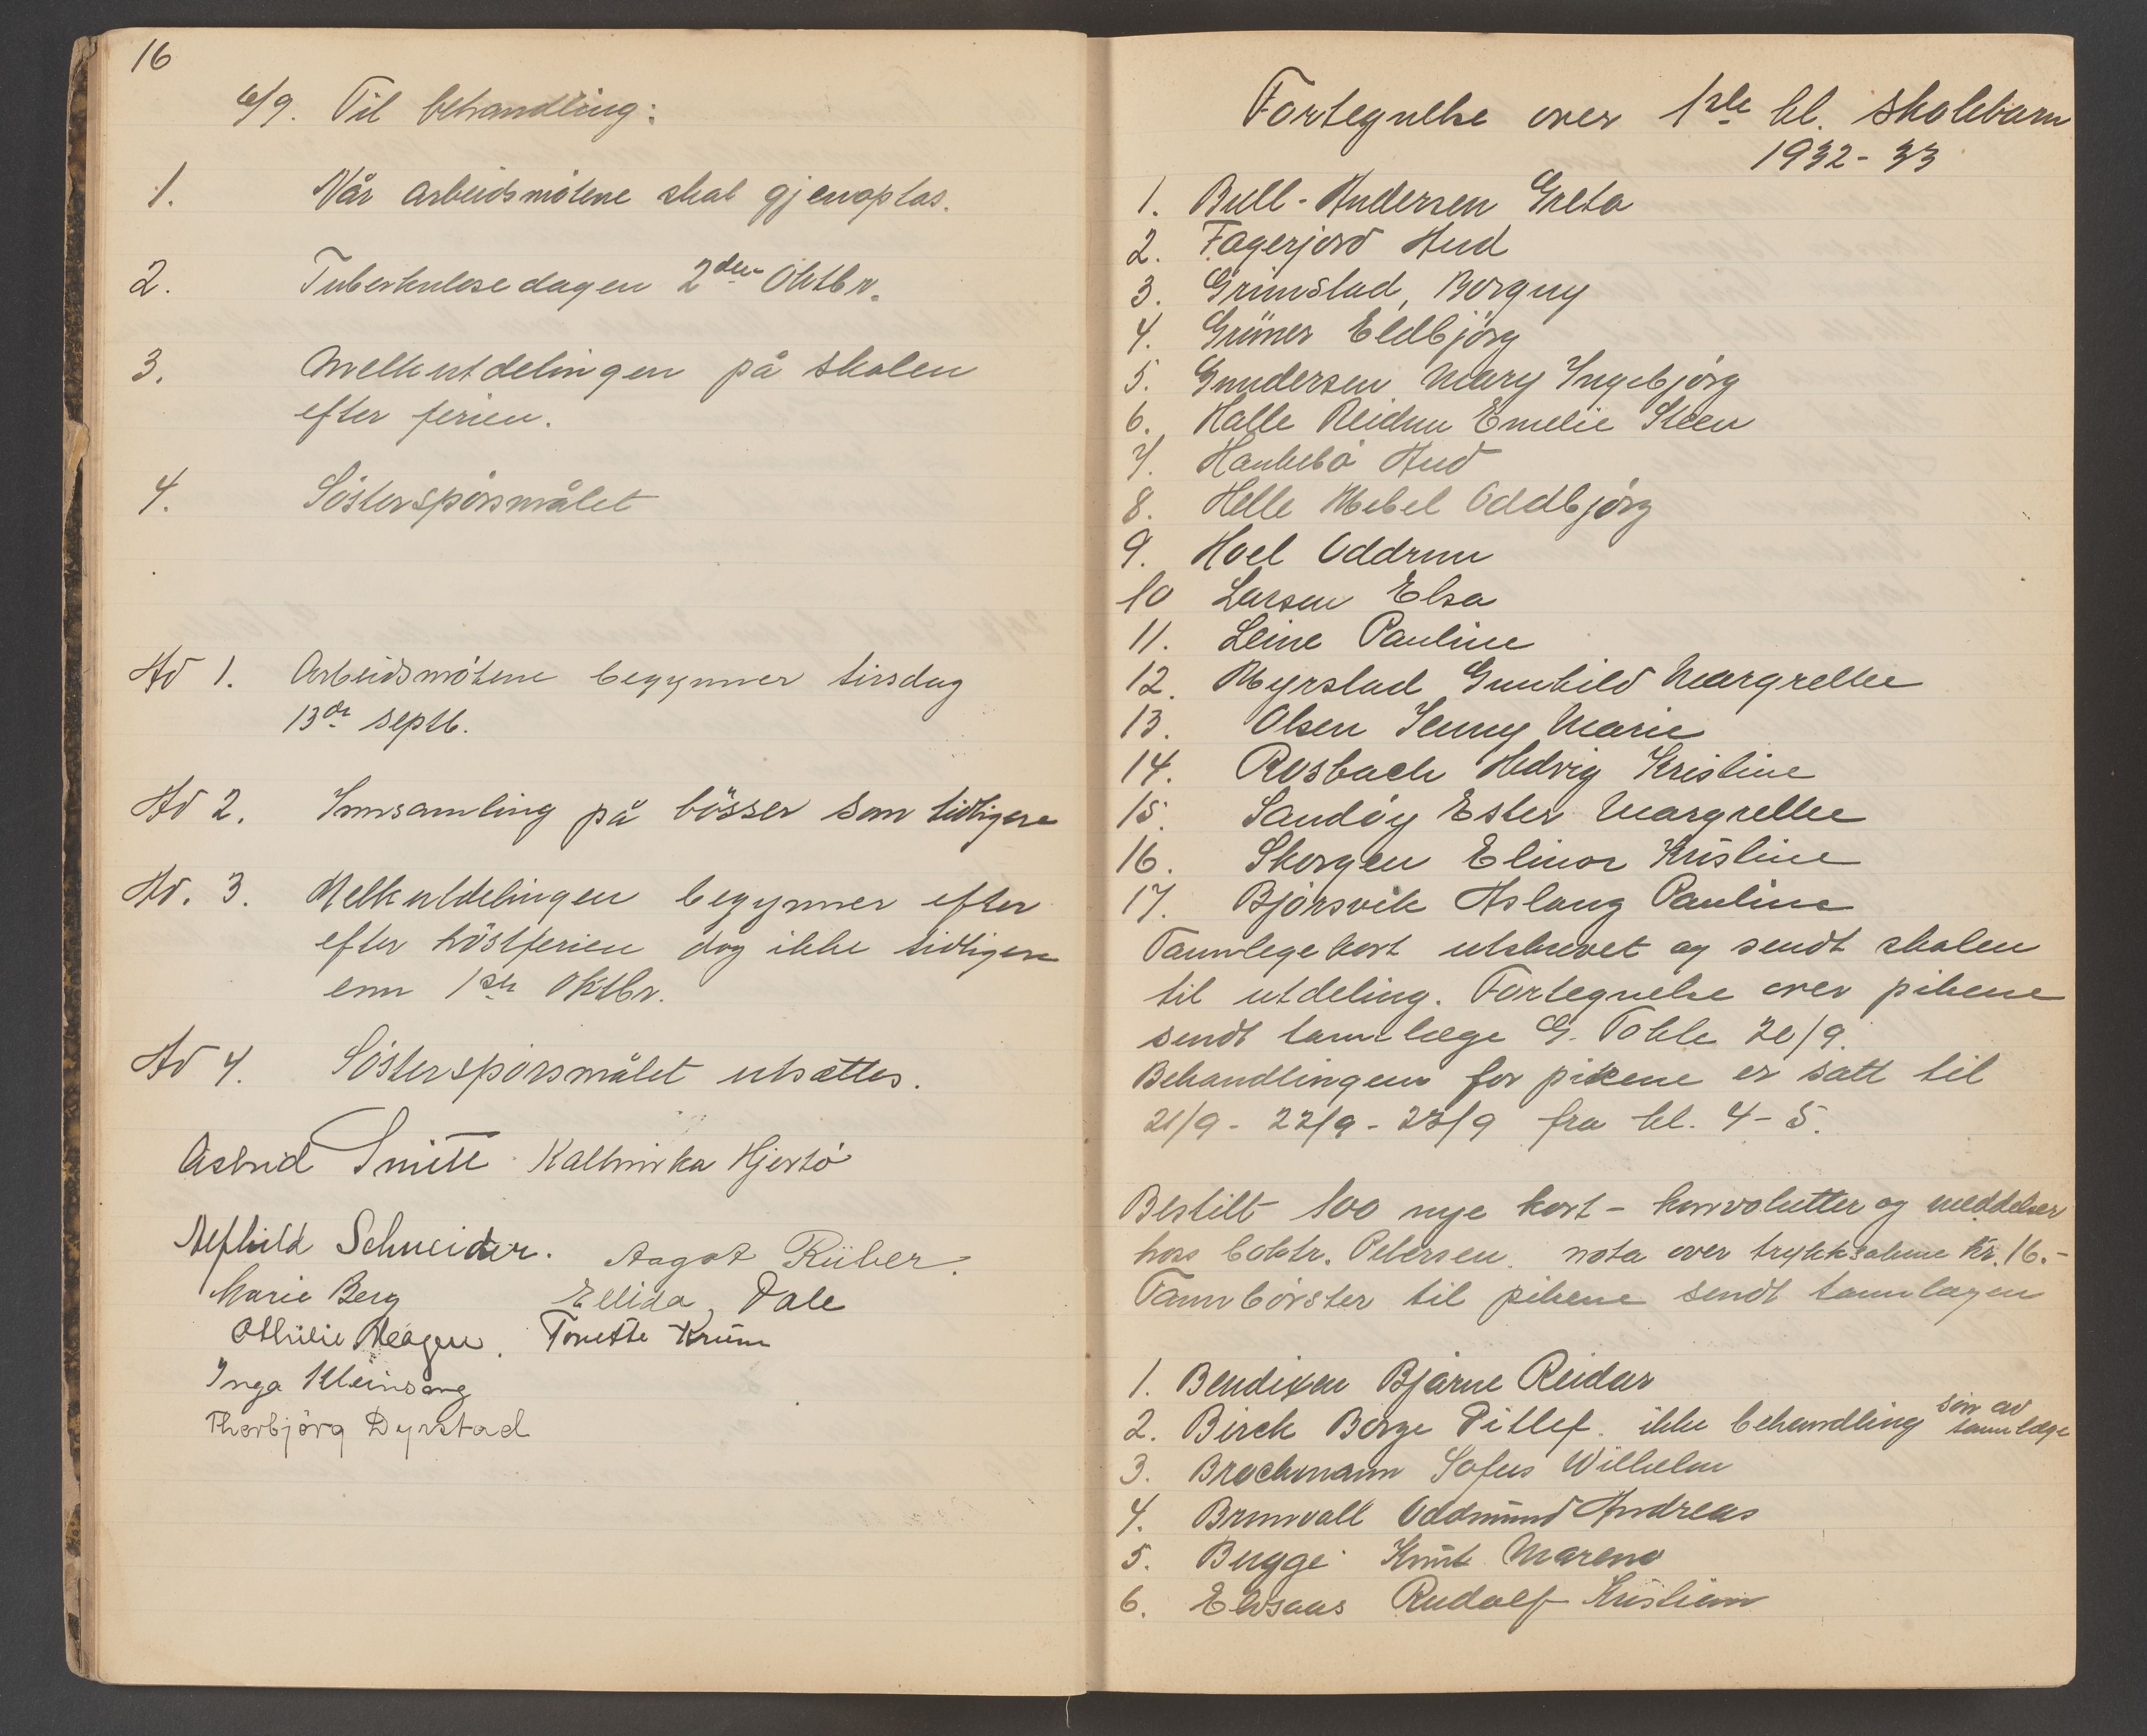 16
6/9. Til behandling:
1. Når arbeidsmötene skal gjenoptas.
2. Tuberkulosedagen 2den Oktbr.
3. Melkutdelingen på skolen
efter ferien.
4. Söstersporsmålet
Ad 1. Arbeidsmötene begynner tirsdag
13de septb.
Ad 2. Innsamling på bösser som tidligere
Ad. 3. Melkutdelingen begynner efter
efter höstferien dog ikke tidligere
enn 1ste Oktbr.
Ad 4. Söstersporsmålet utsættes.
Astrid Smitt Kathinka Hjertö
Alfhild Schneider. Aagot Rüber.
Marie Berg Ellida, Dale
Othilie Hagen. Tonette Krüm
Inga Kleinsang
Thorbjörg Dyrstad
Fortegnelse over 1ste kl. skolebarn
1932-33
1. Bull-Andersen Greta
2. Fagerjord Aud
3. Grimstad, Borgny
4. Grüner Eldbjörg
5. Gundersen Mary Ingebjörg
6. Halle Reidun Emelie Steen
7. Haukebö Aud
8. Helle Mebel Oddbjörg
9. Hoel Oddrun
10 Larsen Elsa
11. Leine Pauline
12. Myrstad Gunhild Margrethe
13. Olsen Jenny Marie
14. Rosbach Hedvig Kristine
15. Sandöy Ester Margrethe
16. Skorgen Elinor Kristine
17. Bjørsvik Aslaug Pauline
Tannlegekort utskrevet og sendt skolen
til utdeling. Fortegnelse over pikene
sendt tannlæge G. Tokle 20/9.
Behandlingen for pikene er satt til
21/9 - 22/9 - 23/9 fra kl. 4-5.
Bestilt 100 nye kort - konvolutter og meddelser
hoss boktr. Petersen. nota over trykksakene kr. 16.-
Tannbörster til pikene sendt tannlægen
1. Bendixen Bjarne Reidar
2. Birck Börge Ditlef. ikke behandling sön av tannlæge
3. Brochmann Sofus Wilhelm
4. Brunvoll Oddmund Andreas
5. Bugge Knut Mareno
6. Elvsaas Rudolf Kristian